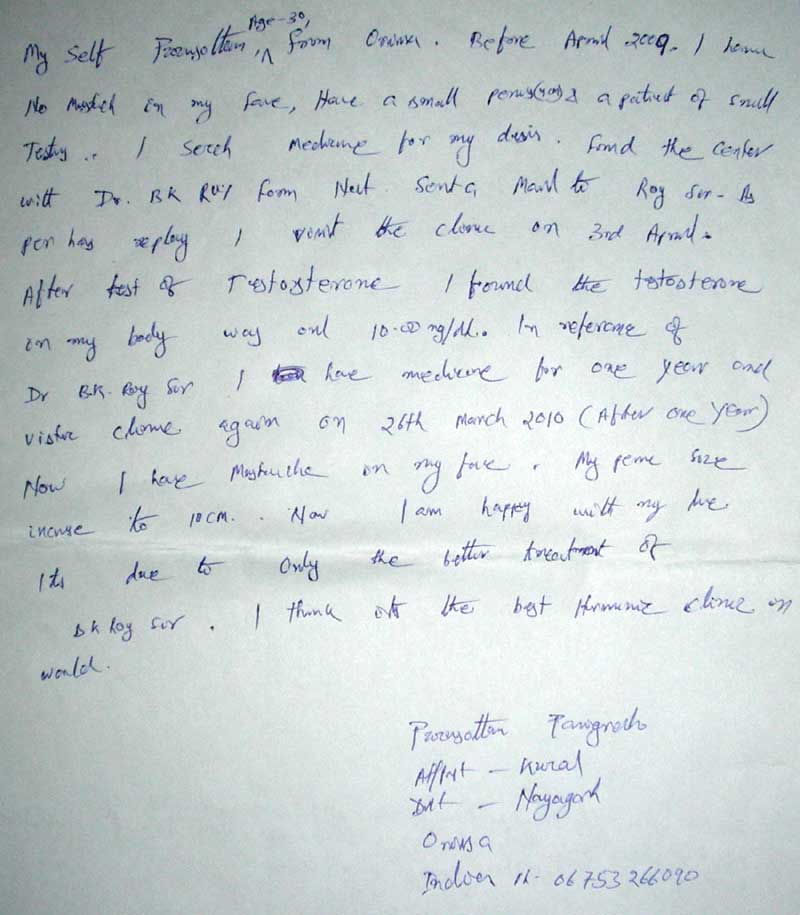 Age-30,
My Self from Orissa. Before April 2009. I have
No in my face, Have a small penis(4cm) & a patient of small
Testis.. I serch medicine for my desis. Found the center
with Dr. BK Roy form Net. Sent a Mail to Roy Sir- As
per his replay I visit the clinic on 3rd April.
After test of Testosterone I found the testosterone
in my body was onl 10.00 ng/dL. In reference of
Dr B.K. Roy Sir I have medicine for one year and
clinic again on 26th March 2010 (After one year)
Now I have Mustuche on my face. My penic size
increse to 10 CM.. Now I am happy with my live
Its due to only the better treatment of
B K Roy Sir. I think its the best Hormonic clinic in
world.
- Kural
Dist - Nayagarh
Orissa
06753 266090